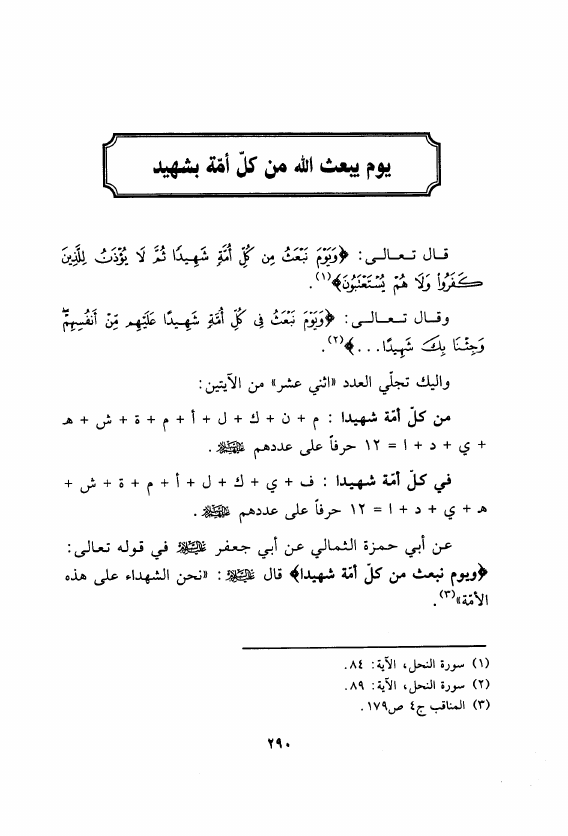 يوم يبعث الله من كلّ أمّة بشهيد
قال تعالى: ﴿وَيَوْمَ نَبْعَثُ مِن كُلِّ أُمَّةٍ شَهِيدًا ثُمَّ لَا يُؤْذَنُ لِلَّذِينَ
كَفَرُوا وَلَا هُمْ يُسْتَعْتَبُونَ﴾(١).
وقال تعالى: ﴿وَيَوْمَ نَبْعَثُ فِى كُلِّ أُمَّةٍ شَهِيدًا عَلَيْهِم مِّنْ أَنفُسِهِمْ ۖ
وَجِئْنَا بِكَ شَهِيدًا...﴾(٢).
واليك تجلّي العدد «اثني عشر» من الآيتين:
من كلّ أمّة شهيدا : م + ن + ك + ل + أ + م + ة + ش + هـ
+ ي + د + ا = ١٢ حرفاً على عددهم عليهم السلام.
في كلّ أمّة شهيدا : ف + ي + ك + ل + أ + م + ة + ش +
هـ + ي + د + ا = ١٢ حرفاً على عددهم عليهم السلام.
عن أبي حمزة الثمالي عن أبي جعفر عليه السلام في قوله تعالى:
﴿ويوم نبعث من كلّ أمّة شهيدا﴾ قال عليه السلام: «نحن الشهداء على هذه
الأمّة»(٣).
(١) سورة النحل، الآية: ٨٤.
(٢) سورة النحل، الآية: ٨٩.
(٣) المناقب ج٤ ص١٧٩.
٢٩٠